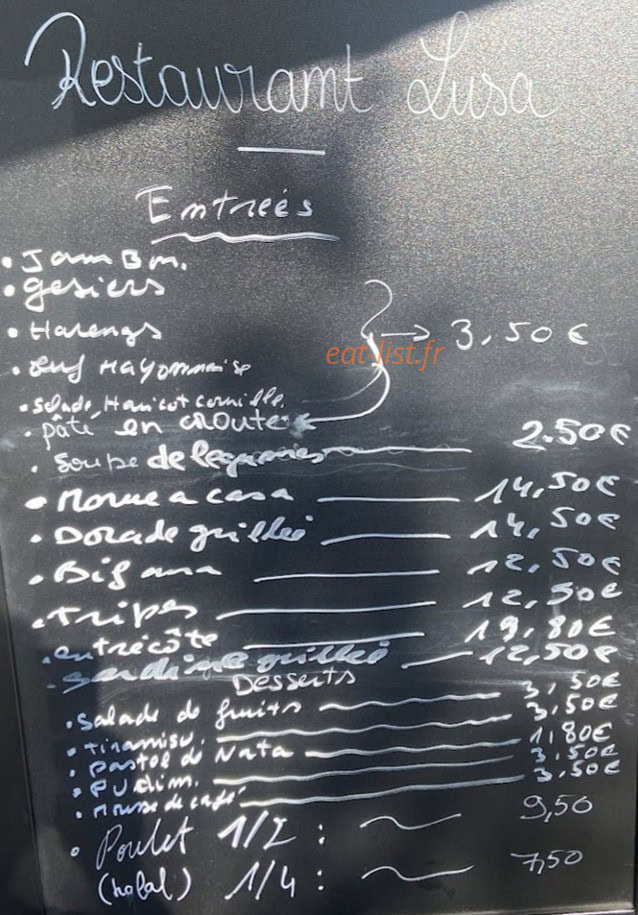 Restaurant Lusa
Entreés
• Jambon.
• gesiers
• Harengs
→ 3,50€
eat-list.fr
• œuf mayonnaise
• salade, Haricot cornille.
• pâté en croute
• Soupe de legumes 2.50€
• Morue a casa 14,50€
• Dorade grillé 14,50€
• Bifana 12,50€
• tripes 12,50€
• entrécôte 19,80€
• Sardine grillé 12,50€
Desserts
• salade de fruits 3,50€
• tiramisu. 3,50€
• pastel de Nata 1,80€
• Pudim. 3,50€
• mousse de café 3,50€
• Poulet 1/2 : 9,50
(halal) 1/4 : 7,50